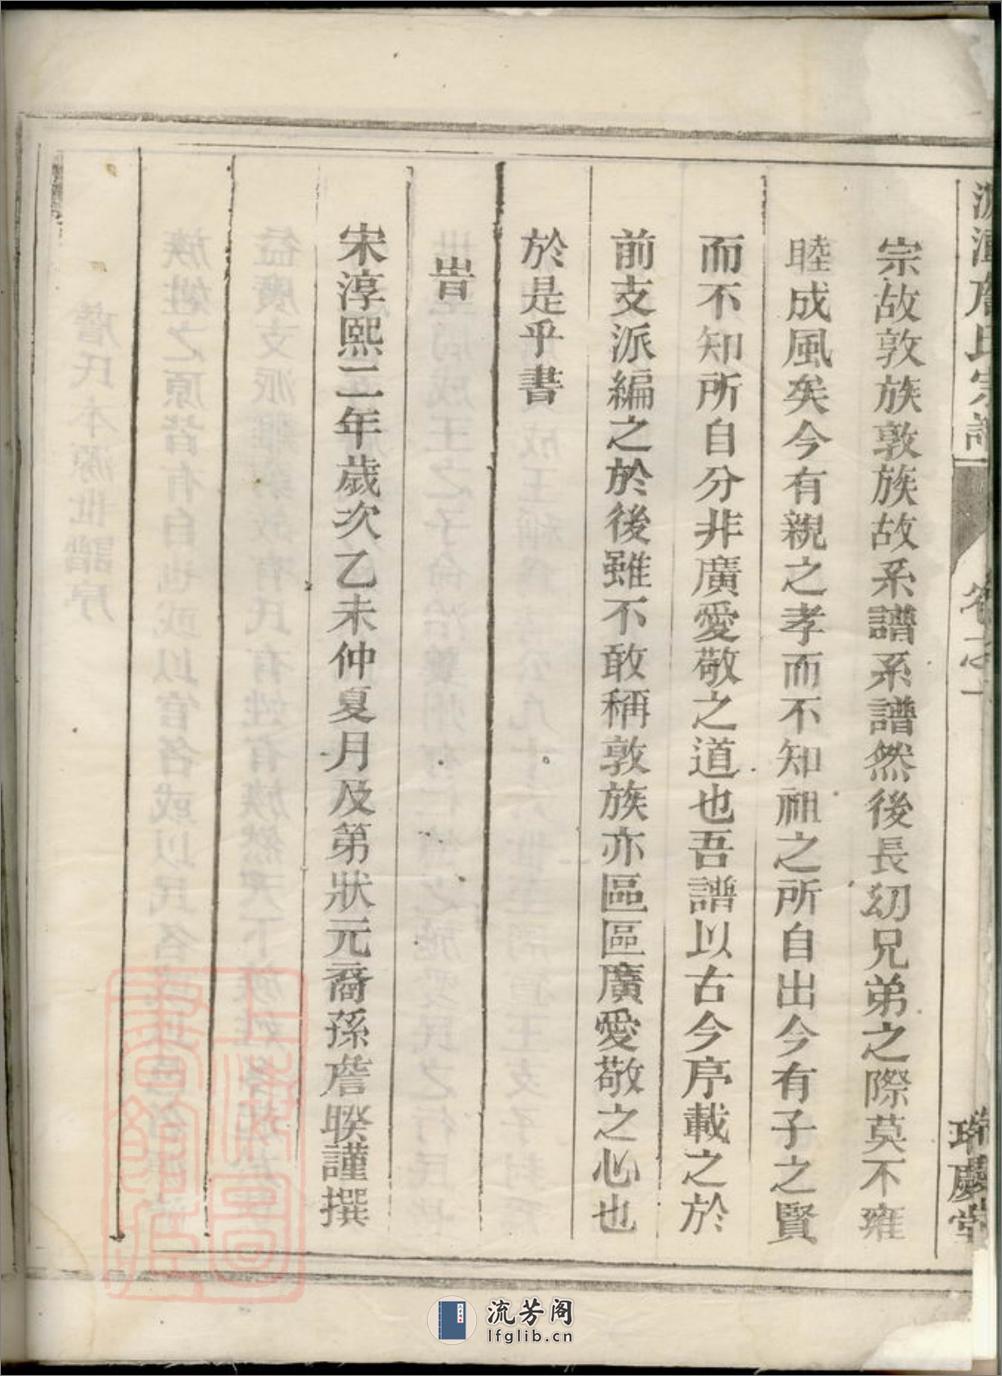 氏宗譜
卷之一
慶堂
宗故敦族敦族故系譜系譜然後長幼兄弟之際莫不雍
睦成風矣今有親之孝而不知祖之所自出今有子之賢
而不知所自分非廣愛敬之道也吾譜以古今序載之於
前支派編之於後雖不敢稱敦族亦區區廣愛敬之心也
於是乎書
旹
宋淳熙二年歲次乙未仲夏月及第狀元裔孫詹騤謹撰
流芳阁
lfglib.cn